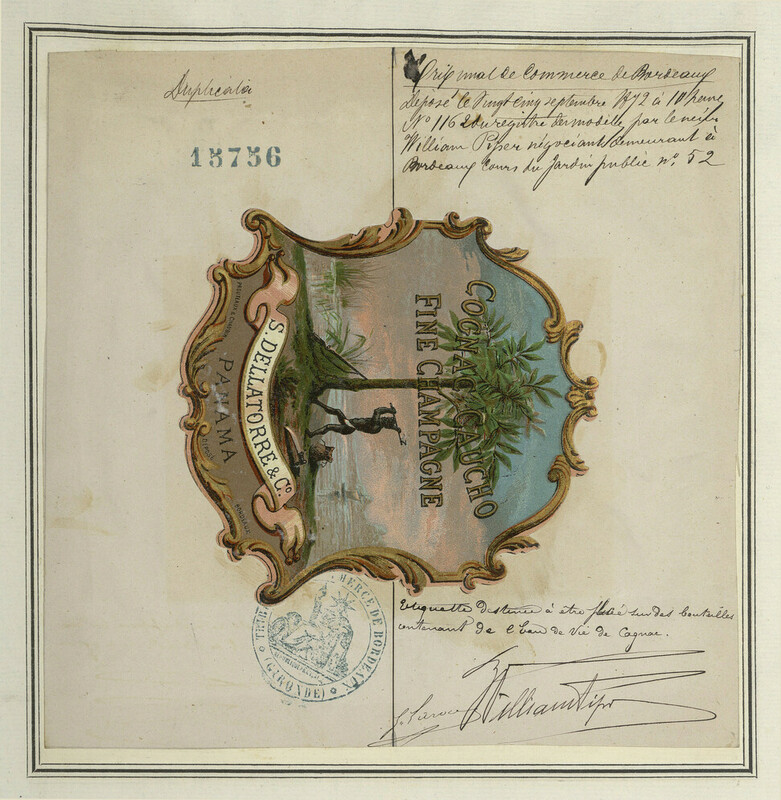 Duplicata
15756
Tribunal de Commerce de Bordeaux
Déposé le Vingt cinq septembre 1872 à 10 heures
No 1162 du registre des modèles, par le
William Piper négociant demeurant à
Bordeaux Cours du Jardin public no. 52
COGNAC GAUCHO
FINE CHAMPAGNE
S. DELLATORRE & Co.
PANAMA
BORDEAUX
TRIBUNAL DE COMMERCE DE BORDEAUX
(GIRONDE)
Etiquette destinée à être fixée sur des bouteilles
contenant de l'Eau de Vie de Cognac.
William Piper